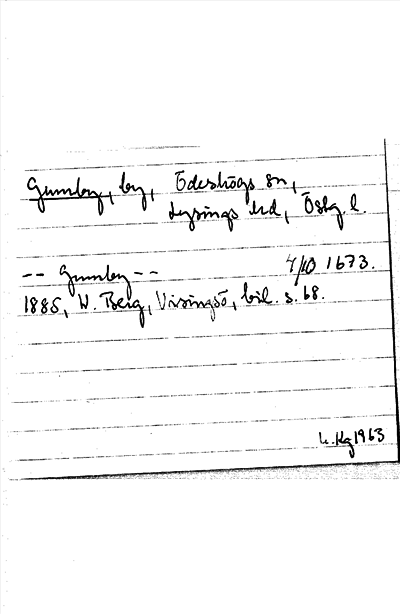 Gumby, by, Ödeshögs sn,
Lysings hd, Östg. l.
-- Gumby -- 4/10 1673.
1885, W. Berg, Visingsö, bil. s. 68.
1963